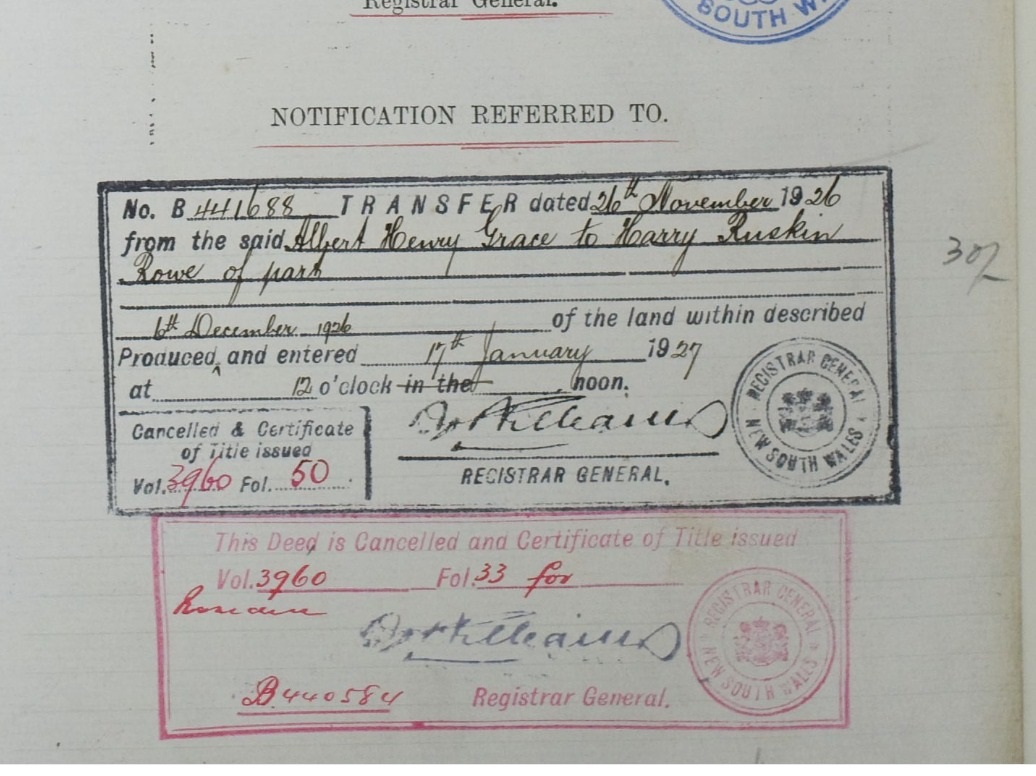 Registrar General.
SOUTH W
NOTIFICATION REFERRED TO.
No. B 441688 TRANSFER dated 26th November 1926
from the said Albert Henry Grace to Harry Ruskin
Rowe of part
of the land within described
6th December 1926
Produced ^ and entered 17th January 1927
at 12 o'clock in the noon.
Cancelled & Certificate
of Title issued
Vol. 3960 Fol. 50
REGISTRAR GENERAL.
REGISTRAR GENERAL
NEW SOUTH WALES
30/
This Deed is Cancelled and Certificate of Title issued
Vol. 3960 Fol. 33 for
B.440584 Registrar General.
REGISTRAR GENERAL
NEW SOUTH WALES